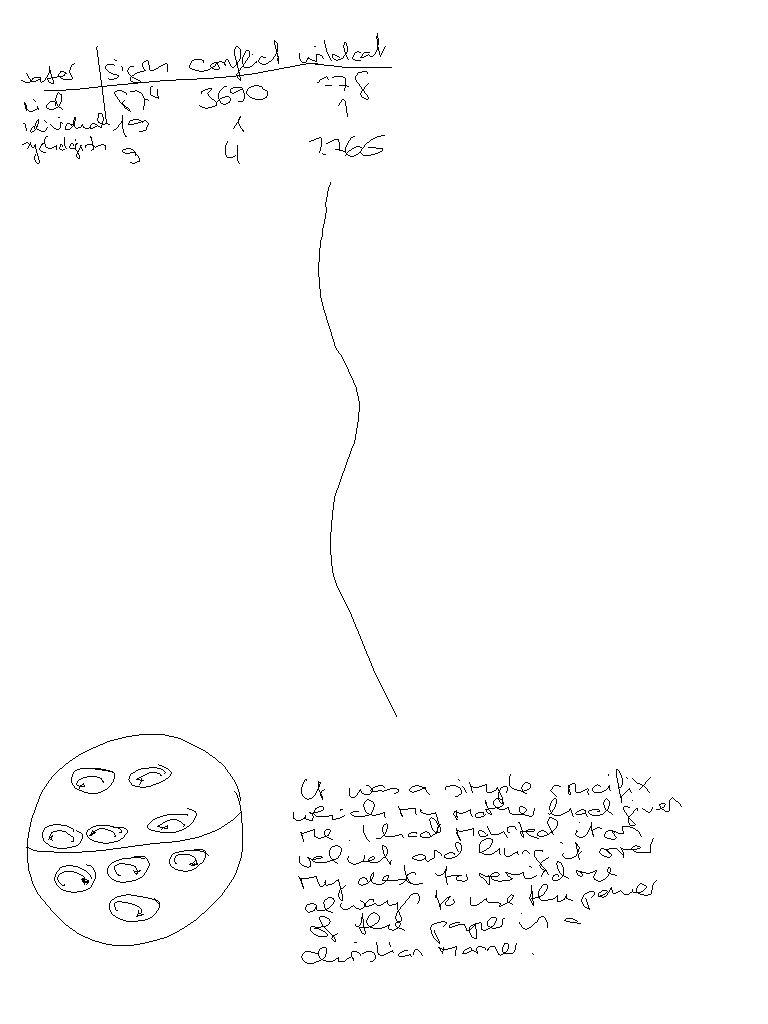 water signs conflict wildcat
kid 874 3690 278
individual 19 1 1
psychologists 9 4 2266
It was a simple crucifix
which my mother had given
me. I had mounted it on
velvet and hung it over
my desk to remind me
always to use the power
of the paper in a
christian manner.